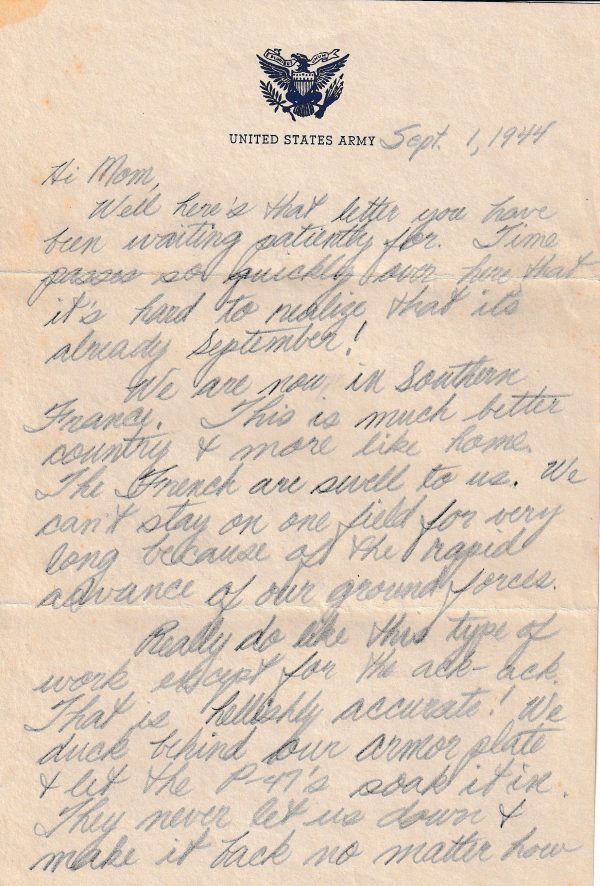 UNITED STATES ARMY Sept. 1, 1944
Hi Mom,
Well here's that letter you have
been waiting patiently for. Time
passes so quickly over here that
it's hard to realize that its
already September!
We are now in Southern
France. This is much better
country & more like home.
The French are swell to us. We
can't stay on one field for very
long because of the rapid
advance of our ground forces.
Really do like this type of
work except for the ack-ack.
That is hellishly accurate! We
duck behind our armor plate
& let the P-47's soak it in.
They never let us down &
make it back no matter how